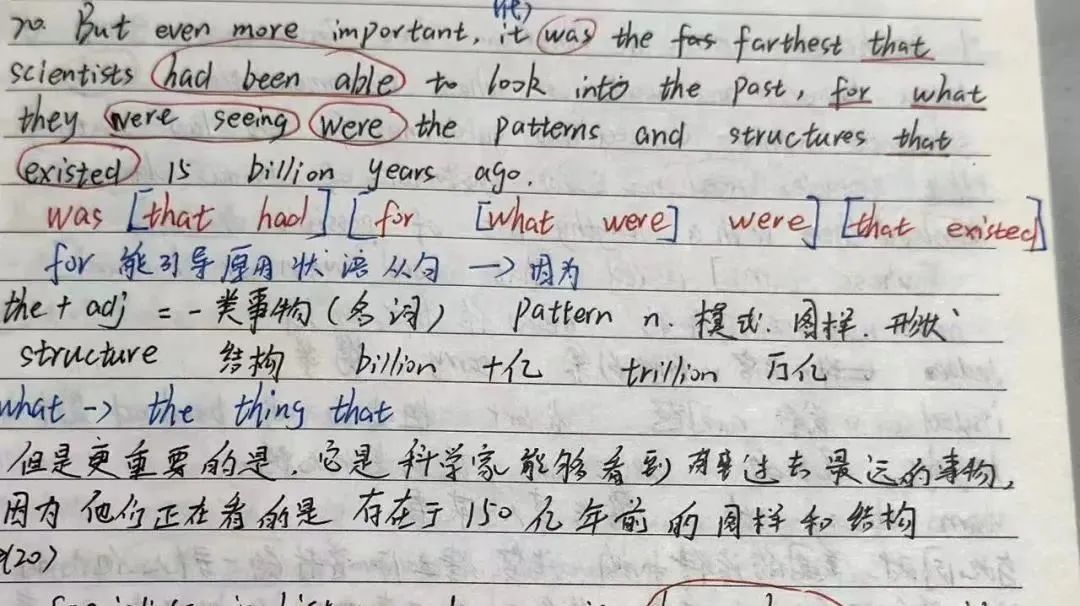 (它)
20. But even more important, it was the fas farthest that
scientists had been able to look into the past, for what
they were seeing were the patterns and structures that
existed 15 billion years ago.
was [that had] [for [what were] were] [that existed]
for 能引导原因状语从句 → 因为
the + adj = 一类事物(名词) pattern n. 模式. 图样. 形状
structure 结构 billion 十亿 trillion 万亿
what -> the thing that
但是更重要的是 它是科学家能够看到 过去最远的事物,
因为他们正在看的是 存在于150亿年前的图样和结构
(20)